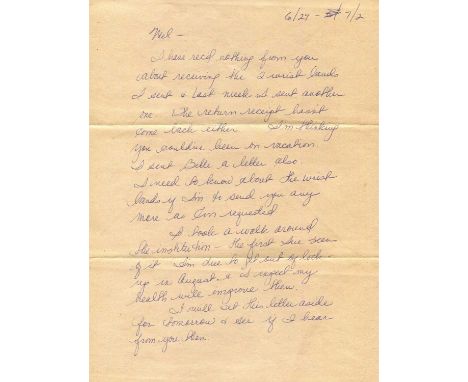 6/27 - 7/2
Mel -
I have rec'd nothing from you
about receiving the 2 wrist bands
I sent & last week I sent another
one. The return receipt hasn't
come back either. I'm thinking
you could've been on vacation.
I sent Bette a letter also.
I need to know about the wrist
bands if I'm to send you any
more as I'm requested
I took a walk around
the institution - the first I've seen
of it. I'm due to get out of lock-
up in August & I expect my
health will improve then.
I will set this letter aside
for tomorrow & see if I hear
from you then.